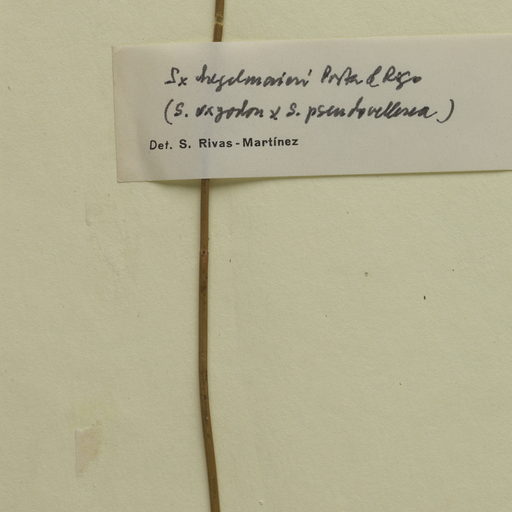 S x hegelmaieri Porta & Rigo
(S. oxyodon x S. pseudovellerea)
Det. S. Rivas-Martínez